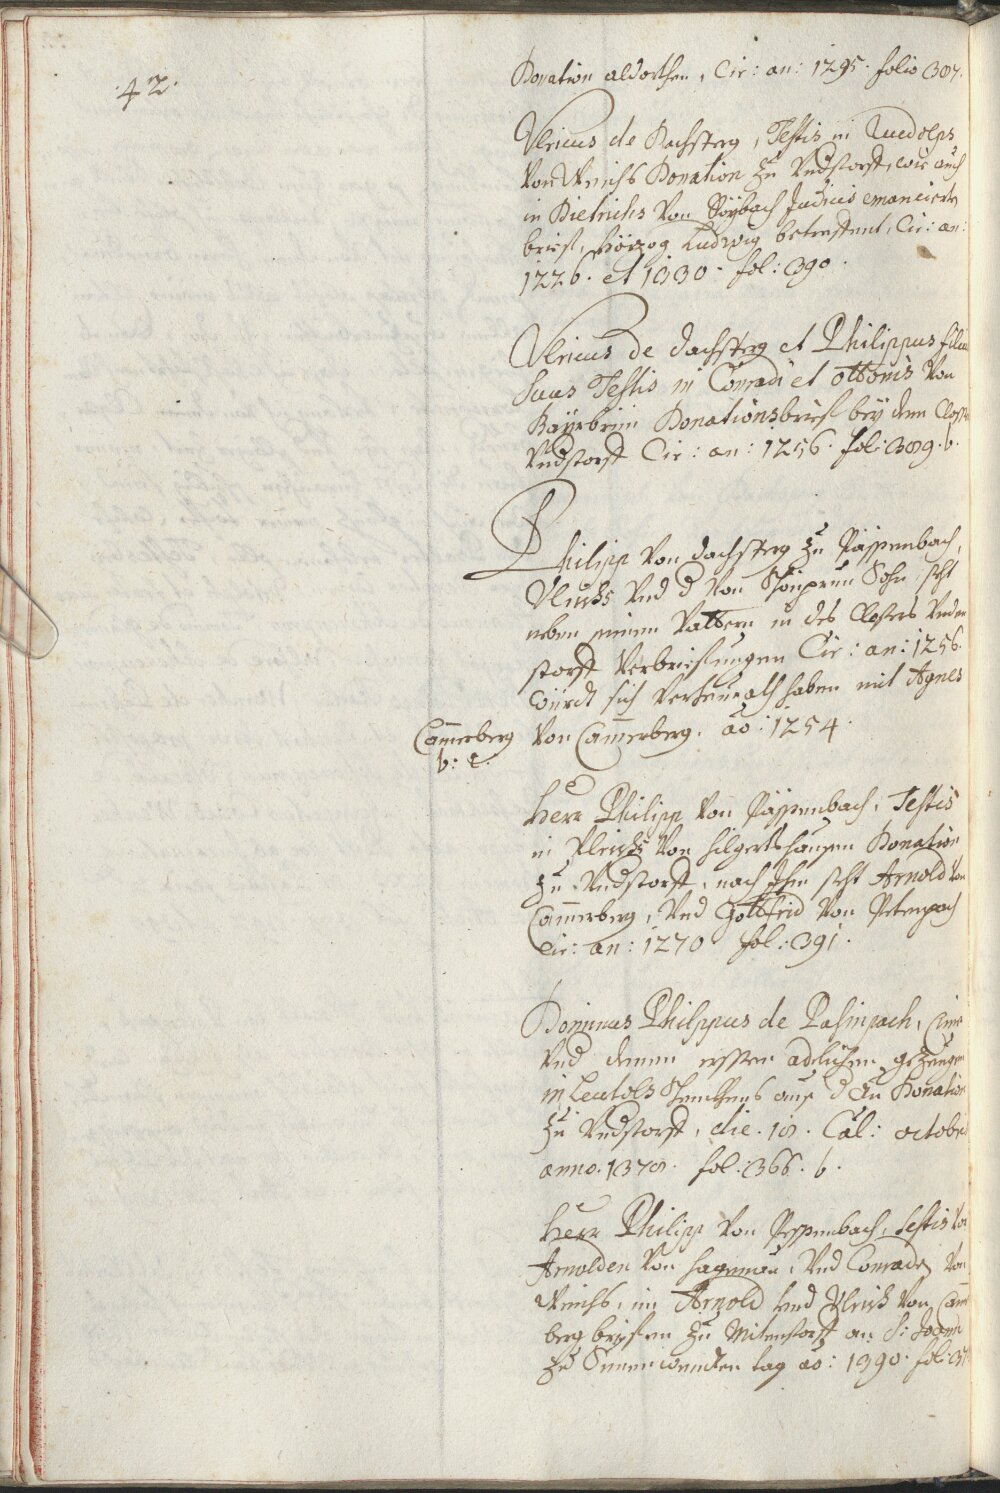 42.
Donation aldorthen, Cir: an: 1295. folio 387.
Vlricus de Dachsterg, Testis in Ruedolps
Von Weichs Donation zu Vndstorff, wie auch
in Dietrichs Von Judicis
brief, Hörzog Ludwig betreffent, Cir: an:
1226. et 1330. fol: 390.
Vlricus de Dachsterg et Philippus filius
suus Testis in Conradi et Ottonis Von
Donationsbrief bey dem Closter
Vndstorff Cir: an: 1256. fol: 389. b.
Philipp Von Dachsterg zu Päppenbach,
Vlrichs Vnd d Von Sohn seht
neben seinem Vattern in des Closters Vnder
storff Verbriefungen Cir: an: 1256.
würdt sich Verheurath haben mit Agnes
Von Camerberg. ao: 1254.
Camerberg
b: C.
Herr Philipp Von Päppenbach, Testis
in Vlrichs Von Hilgertshausen Donation
zu Vndstorff, nach Ihm seht Arnold Von
Camerberg, Vnd Gottfrid Von Petenpach
Cir: an: 1270 fol: 391.
Dominus Philippus de Pasinpach,
Vnd denen ersten adelichen gezeugen
in Leutolds aus d Au Donation
zu Vndstorff, die. 18. Cal: octobris
anno. 1378. fol: 366. b.
Herr Philipp Von Peppenbach, testis Von
Arnolden Von Hagenau, Vnd Conraden Von
Weichs, im Arnold Vnd Vlrich Von Camer
berg briefen zu Mitenstorff an S: Joann
zu Sunnwendten tag ao: 1390. fol: 37